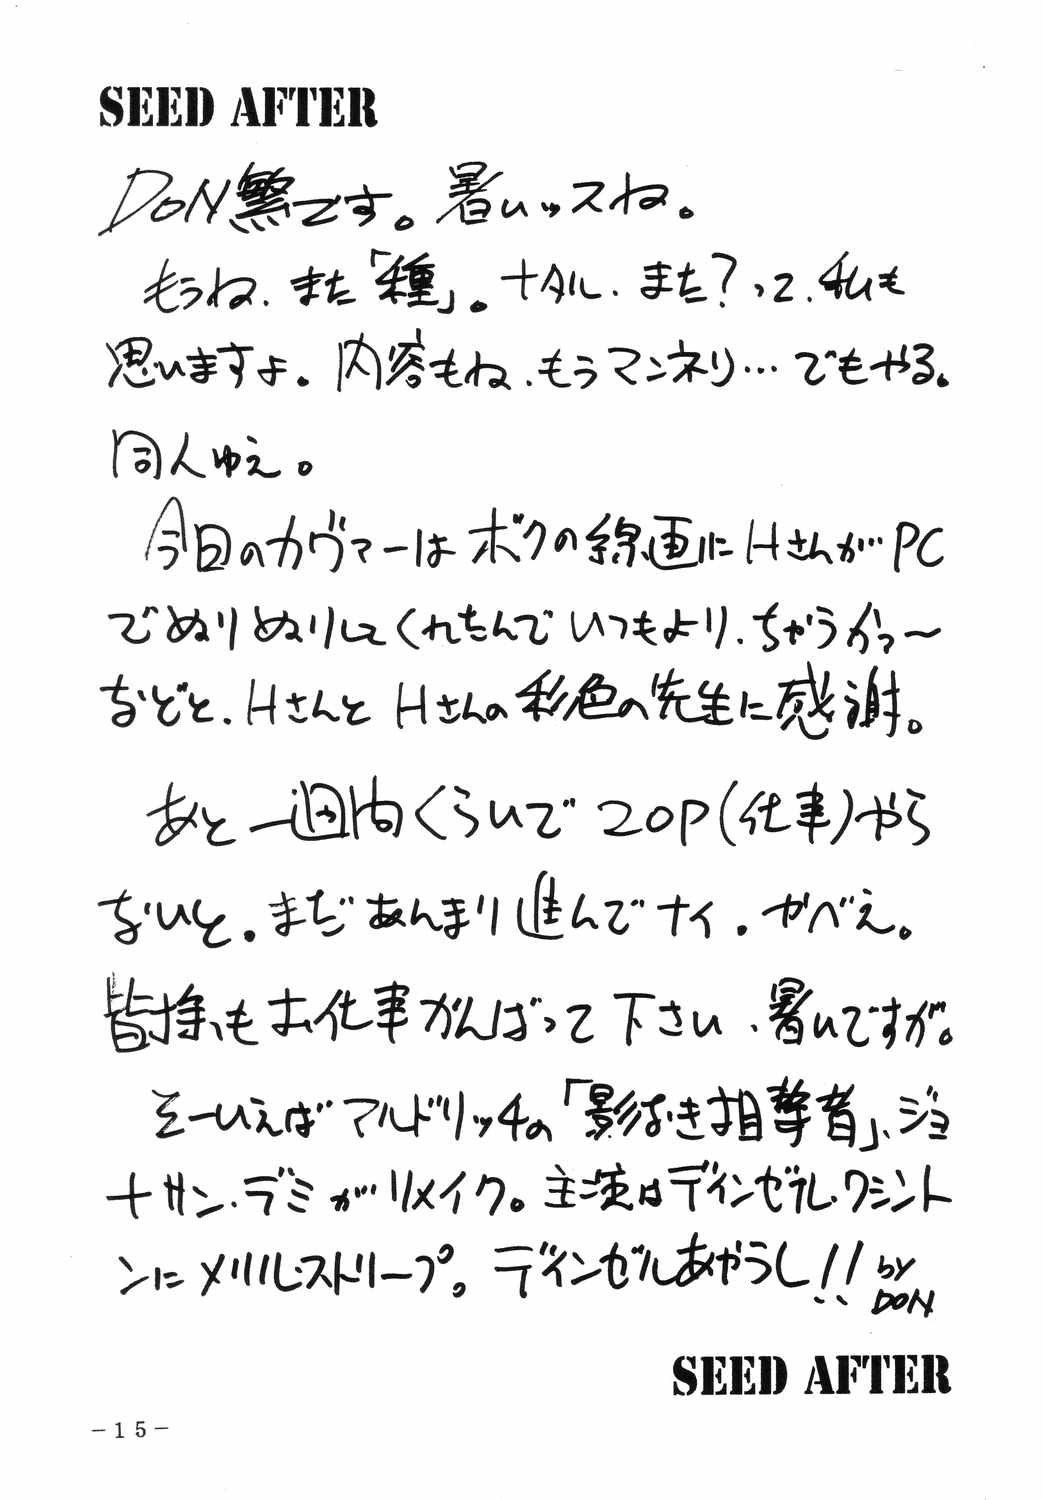 SEED AFTER
DON繁です。暑いッスね。
もうね、また「種」。ナタル、また?って、私も
思いますよ。内容もね、もうマンネリ…でもやる。
同人ゆえ。
今回のカヴァーはボクの線画にHさんが…PC
でぬりぬりしてくれたんでいつもより、ちがうかっ〜
などと、HさんとHさんの彩色の先生に感謝。
あと一週間くらいで20P(仕事)やら
ないと。まだあんまり進んでナイ。やべえ。
皆様もお仕事がんばって下さい、暑いですが。
そーいえばマルドリッチの「影なき狙撃者」、ジョ
ナサン・デミがリメイク。主演はデインゼル・ワシント
ンにメリル・ストリープ。デインゼルあやうし!!
BY
DON
SEED AFTER
-15-